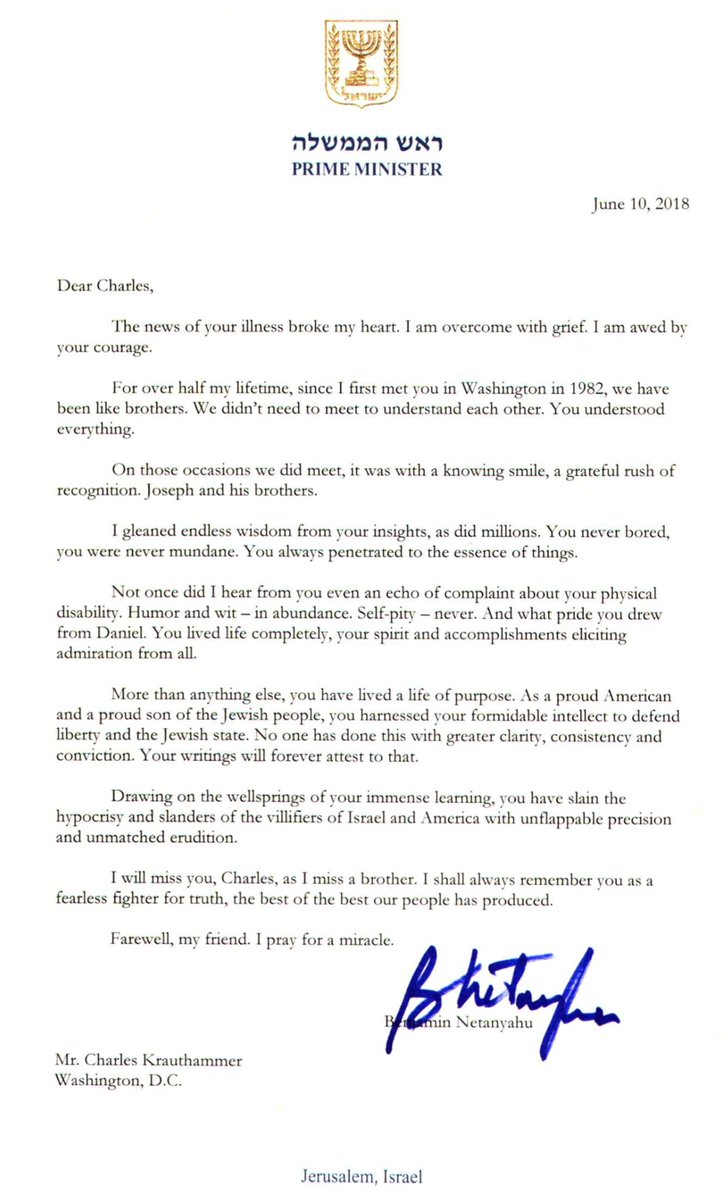 ישראל
ראש הממשלה
PRIME MINISTER
June 10, 2018
Dear Charles,
The news of your illness broke my heart. I am overcome with grief. I am awed by
your courage.
For over half my lifetime, since I first met you in Washington in 1982, we have
been like brothers. We didn't need to meet to understand each other. You understood
everything.
On those occasions we did meet, it was with a knowing smile, a grateful rush of
recognition. Joseph and his brothers.
I gleaned endless wisdom from your insights, as did millions. You never bored,
you were never mundane. You always penetrated to the essence of things.
Not once did I hear from you even an echo of complaint about your physical
disability. Humor and wit – in abundance. Self-pity – never. And what pride you drew
from Daniel. You lived life completely, your spirit and accomplishments eliciting
admiration from all.
More than anything else, you have lived a life of purpose. As a proud American
and a proud son of the Jewish people, you harnessed your formidable intellect to defend
liberty and the Jewish state. No one has done this with greater clarity, consistency and
conviction. Your writings will forever attest to that.
Drawing on the wellsprings of your immense learning, you have slain the
hypocrisy and slanders of the villifiers of Israel and America with unflappable precision
and unmatched erudition.
I will miss you, Charles, as I miss a brother. I shall always remember you as a
fearless fighter for truth, the best of the best our people has produced.
Farewell, my friend. I pray for a miracle.
B Netanyahu
Benjamin Netanyahu
Mr. Charles Krauthammer
Washington, D.C.
Jerusalem, Israel